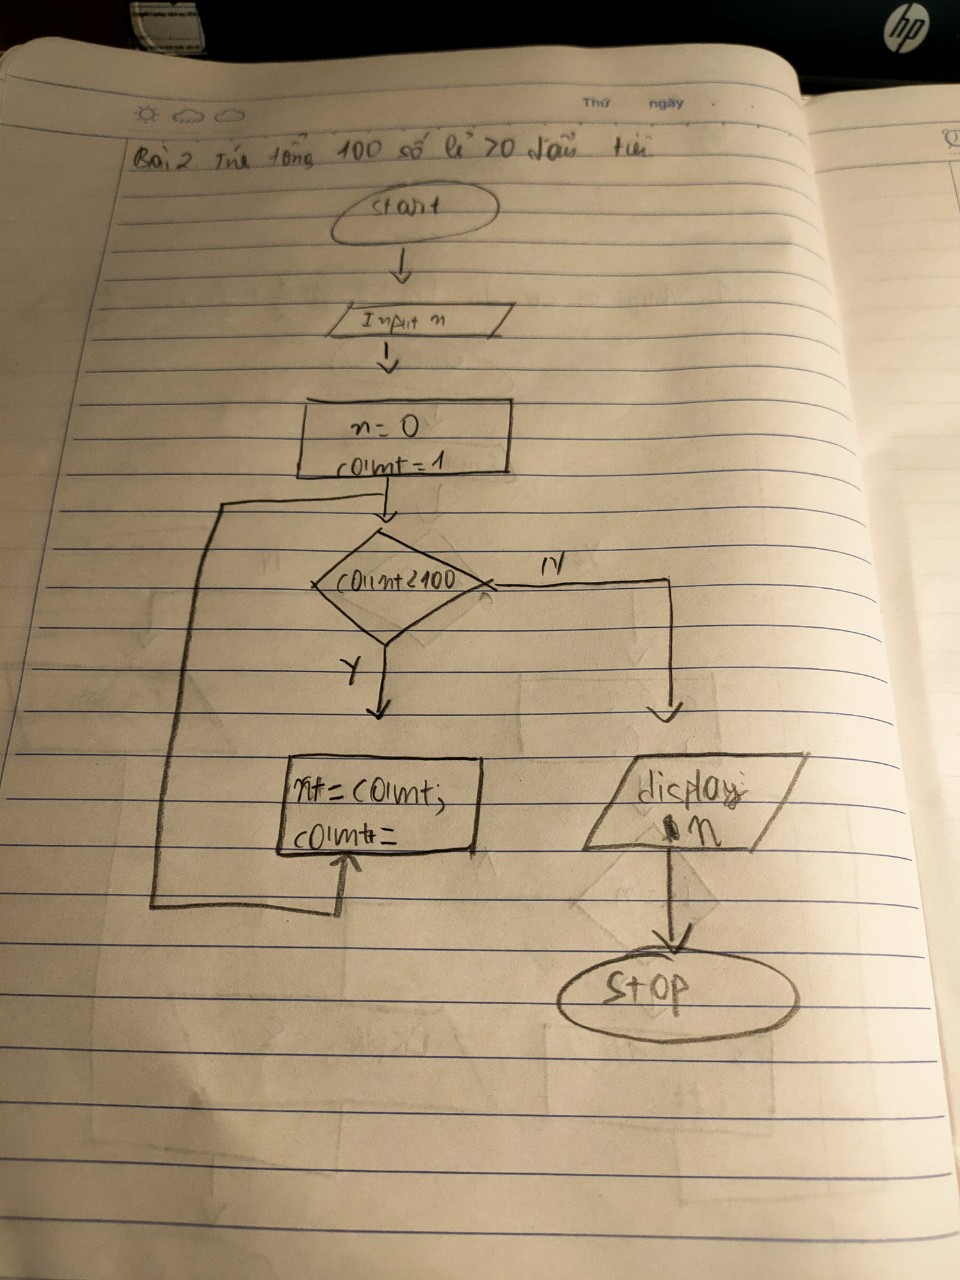 hp
Thứ ngày
Bài 2 Tính tổng 100 số lẻ >0 đầu tiên
Start
Input n
n = 0
count = 1
count<100
N
Y
n+= count;
count+=
display
n
Stop